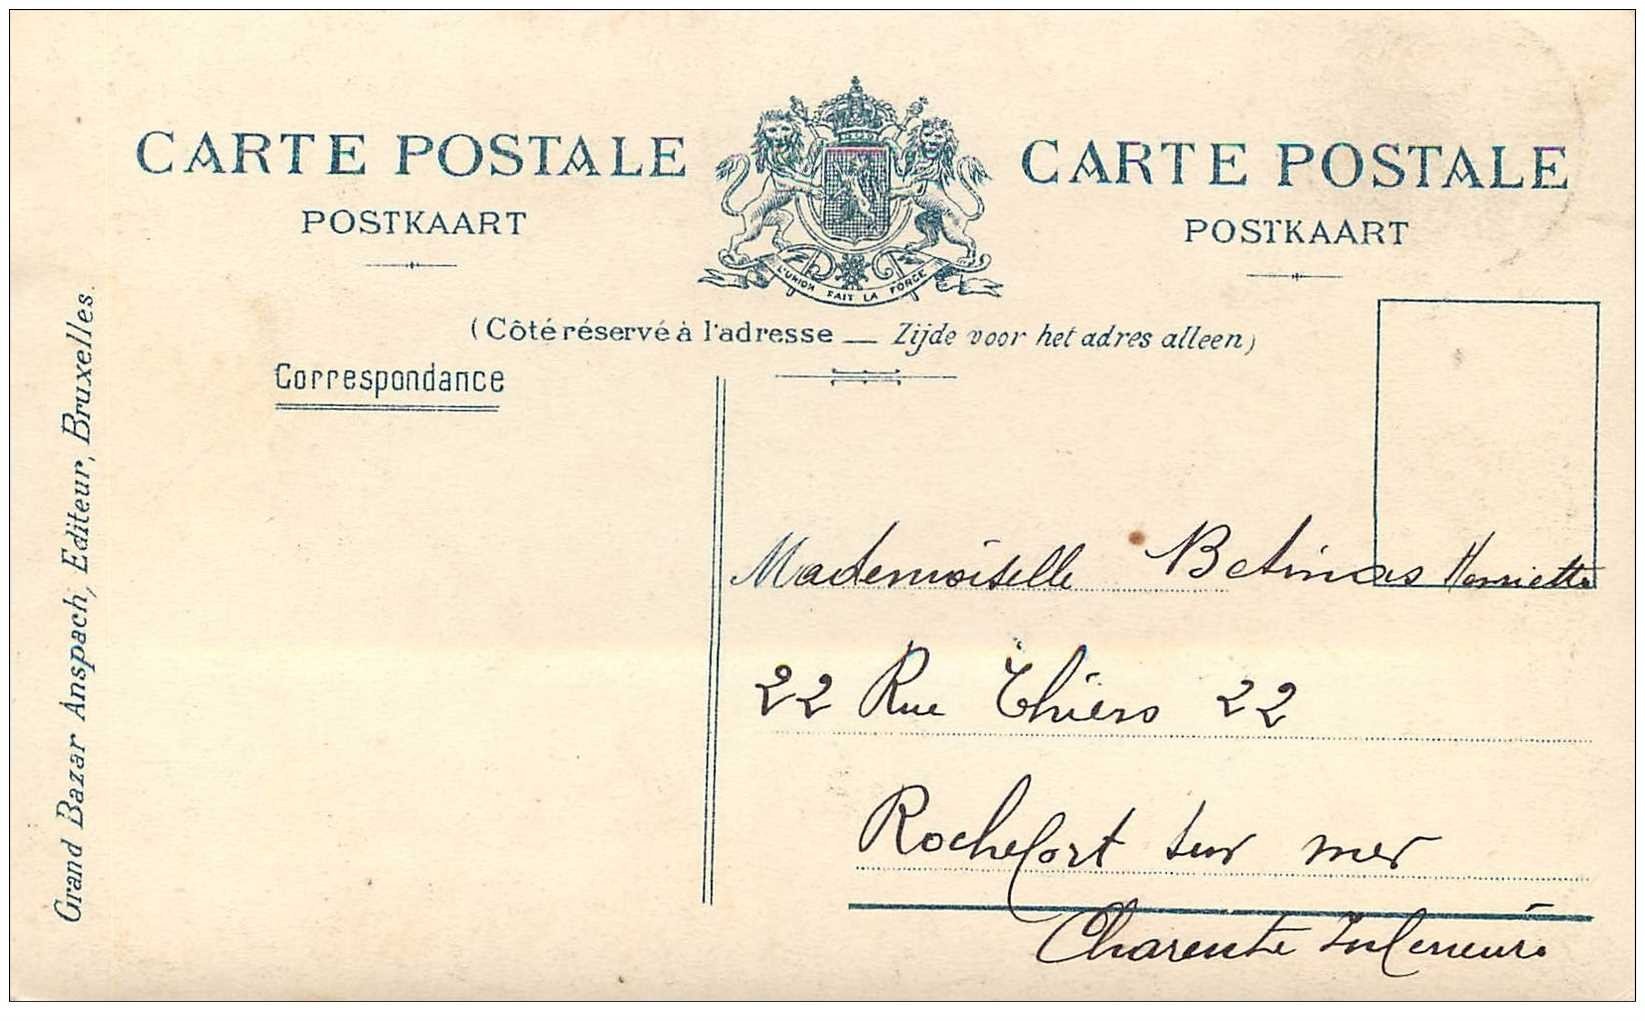 CARTE POSTALE
POSTKAART
CARTE POSTALE
POSTKAART
L'UNION FAIT LA FORCE
(Côté réservé à l'adresse — Zijde voor het adres alleen)
Correspondance
Grand Bazar Anspach, Editeur, Bruxelles.
Mademoiselle Betinas Henriette
22 Rue Thiers 22
Rochefort sur mer
Charente Inferieure